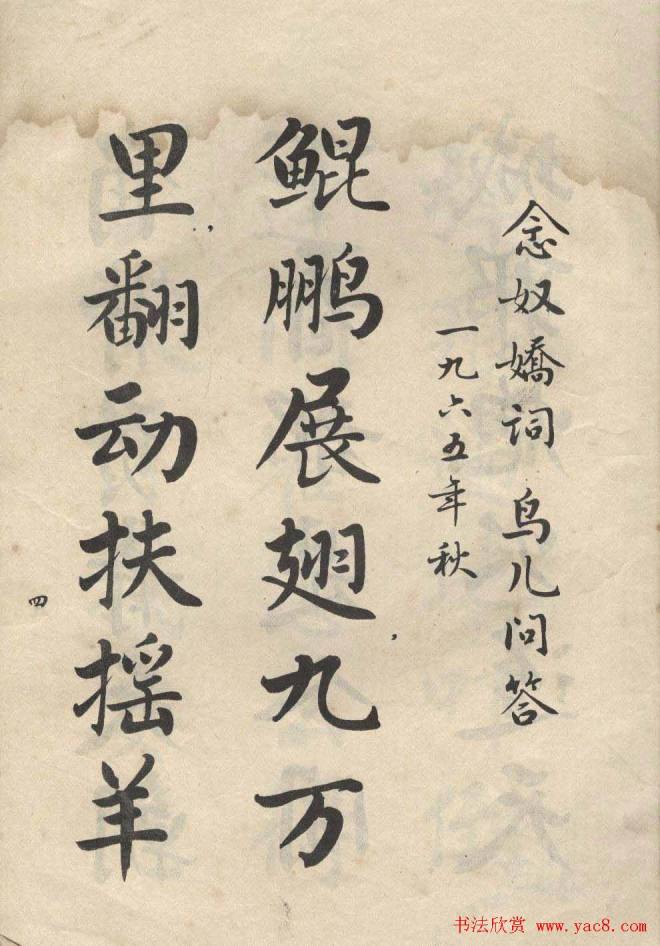 念奴嬌词 鸟儿问答
一九六五年秋
鲲鹏展翅，九万
里，翻动扶摇羊
四
书法欣赏 www.yac8.com